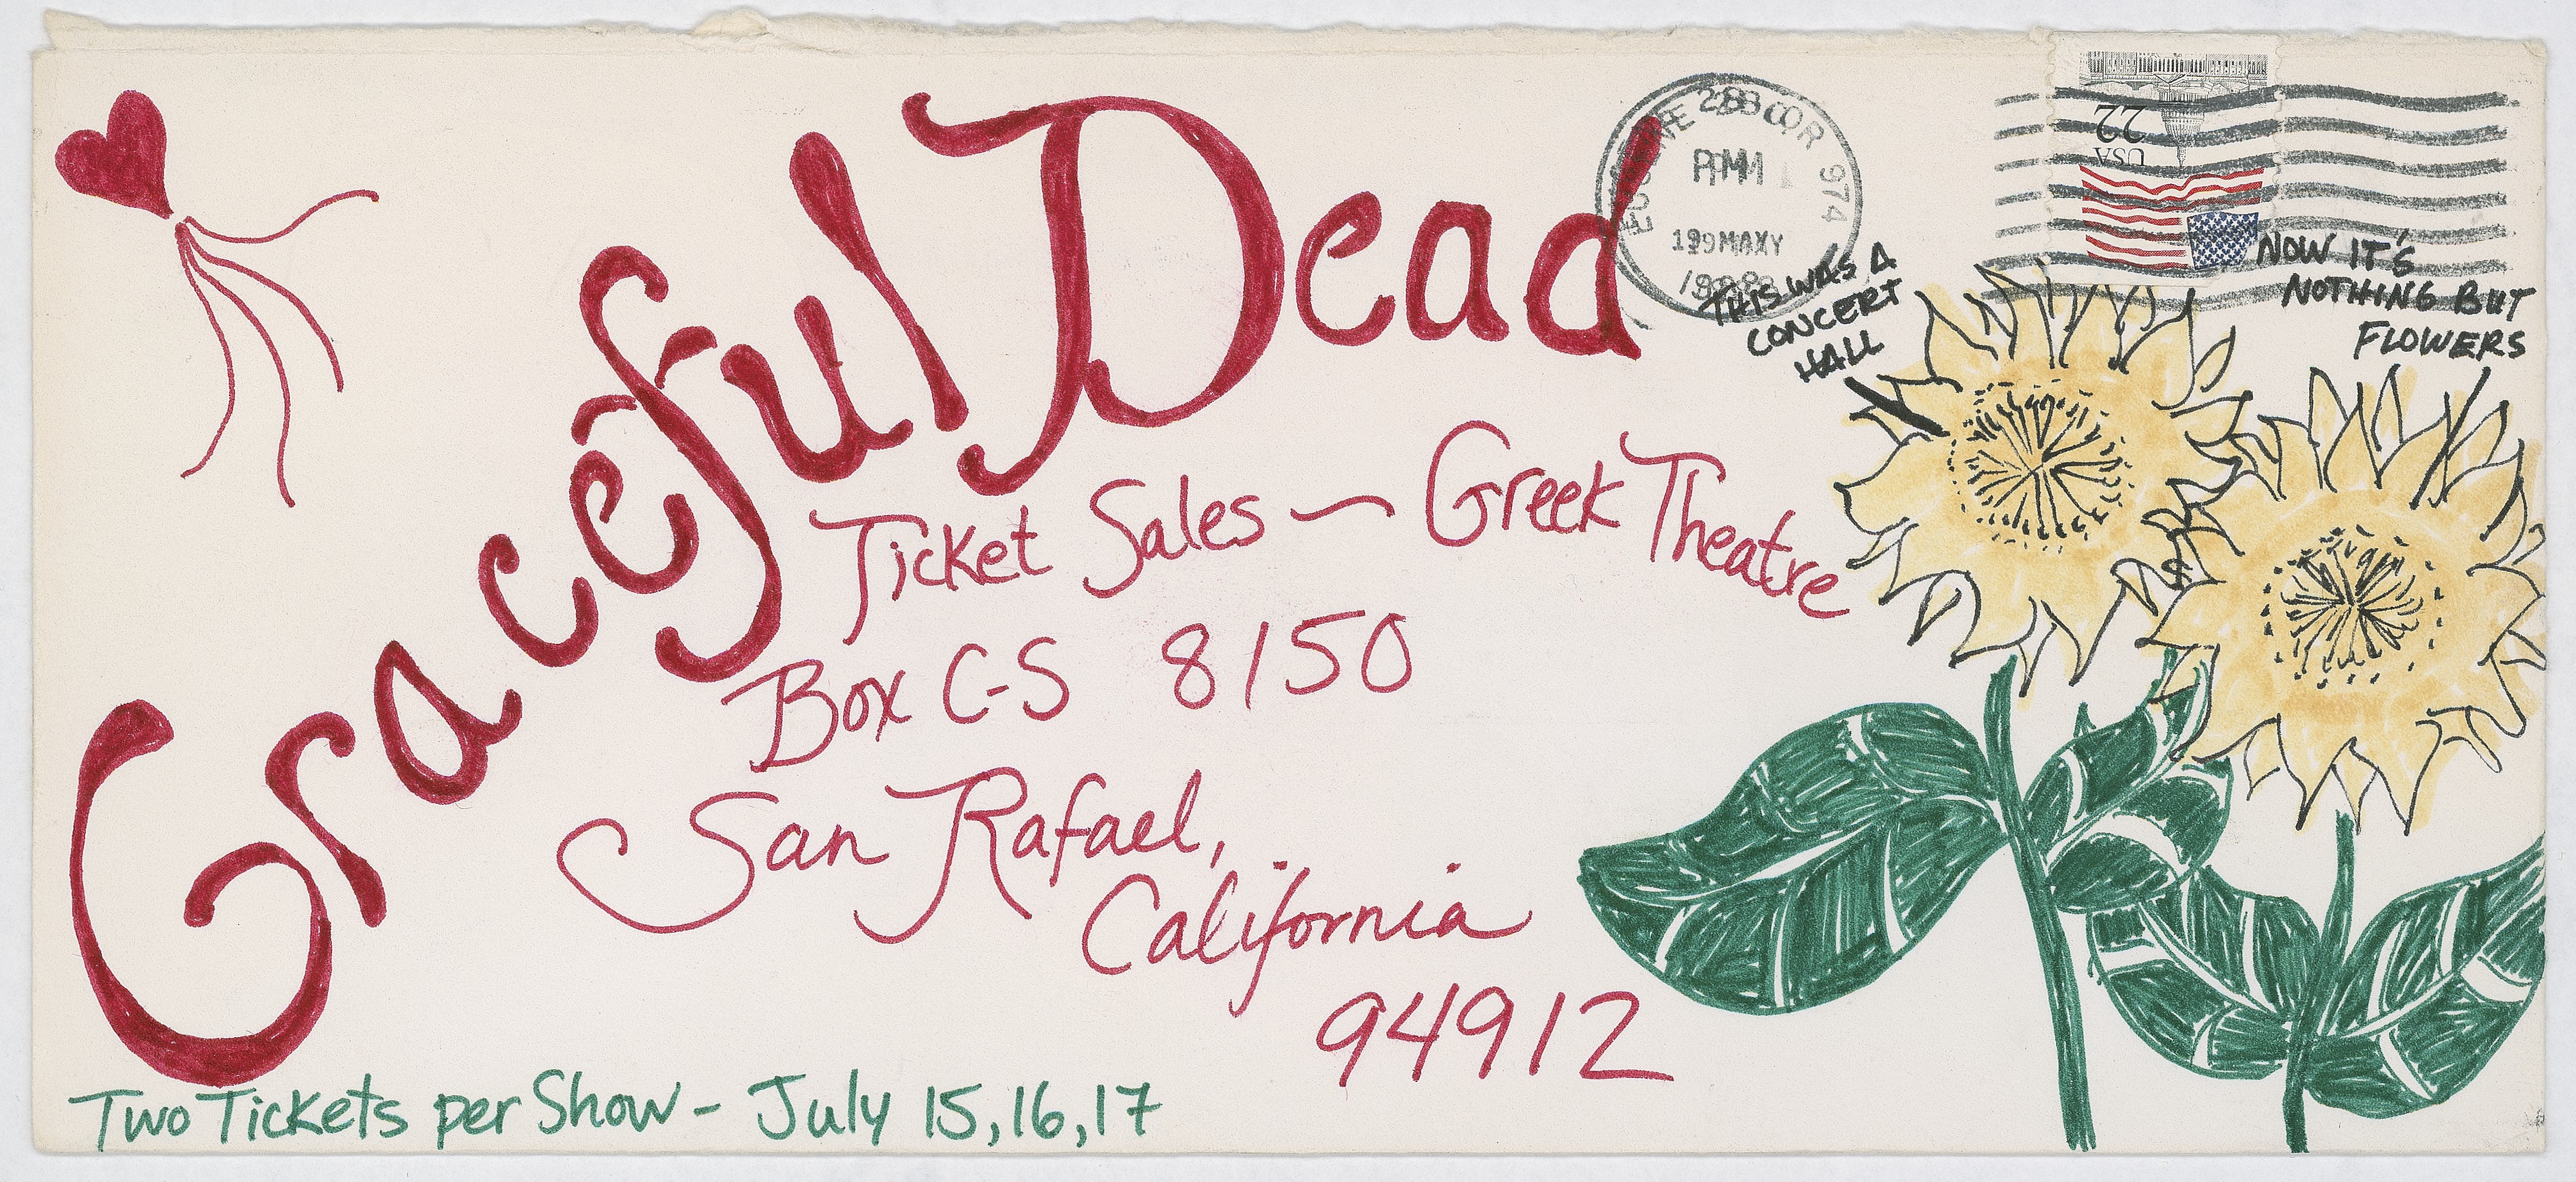 Graceful Dead
Ticket Sales — Greek Theatre
Box C-S 8150
San Rafael,
California
94912
Two Tickets per Show - July 15, 16, 17
PM
1988
974
USA
22
THIS WAS A
CONCERT
HALL
NOW IT'S
NOTHING BUT
FLOWERS